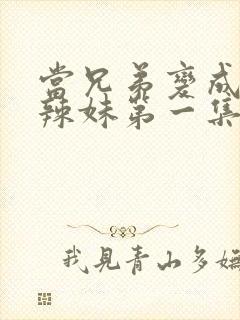 當兄弟變成
辣妹第一集
我見青山多嫵